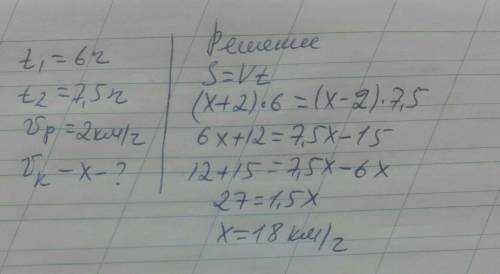 t₁ = 6ч
t₂ = 7,5ч
Vр = 2км/ч
Vк – x – ?
Решение
S = Vt
(x+2)·6 = (x–2)·7,5
6x+12 = 7,5x–15
12+15 = 7,5x–6x
27 = 1,5x
x = 18 км/ч